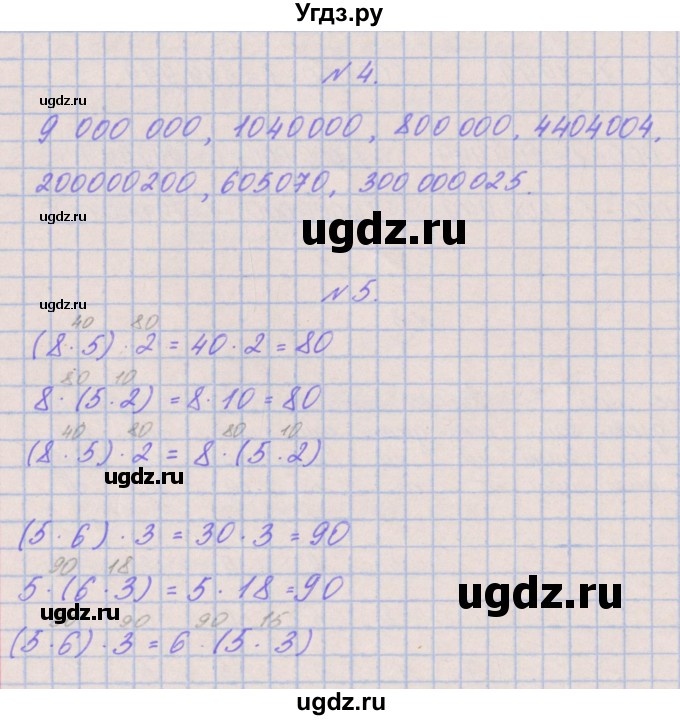 Угдз.ру
№ 4.
ugdz.ru
9 000 000, 1040000, 800 000, 4404004,
200000200, 605070, 300 000 025.
ugdz.ru
ugdz.ru
№ 5.
ugdz.ru
40 80
(8 · 5) · 2 = 40 · 2 = 80
80 10
8 · (5 · 2) = 8 · 10 = 80
40 80 80 10
(8 · 5) · 2 = 8 · (5 · 2)
ugdz.ru
(5 · 6) · 3 = 30 · 3 = 90
90 18
5 · (6 · 3) = 5 · 18 = 90
ugdz.ru
ugdz.ru
90 90 15
(5 · 6) · 3 = 6 · (5 · 3)
ugdz.ru